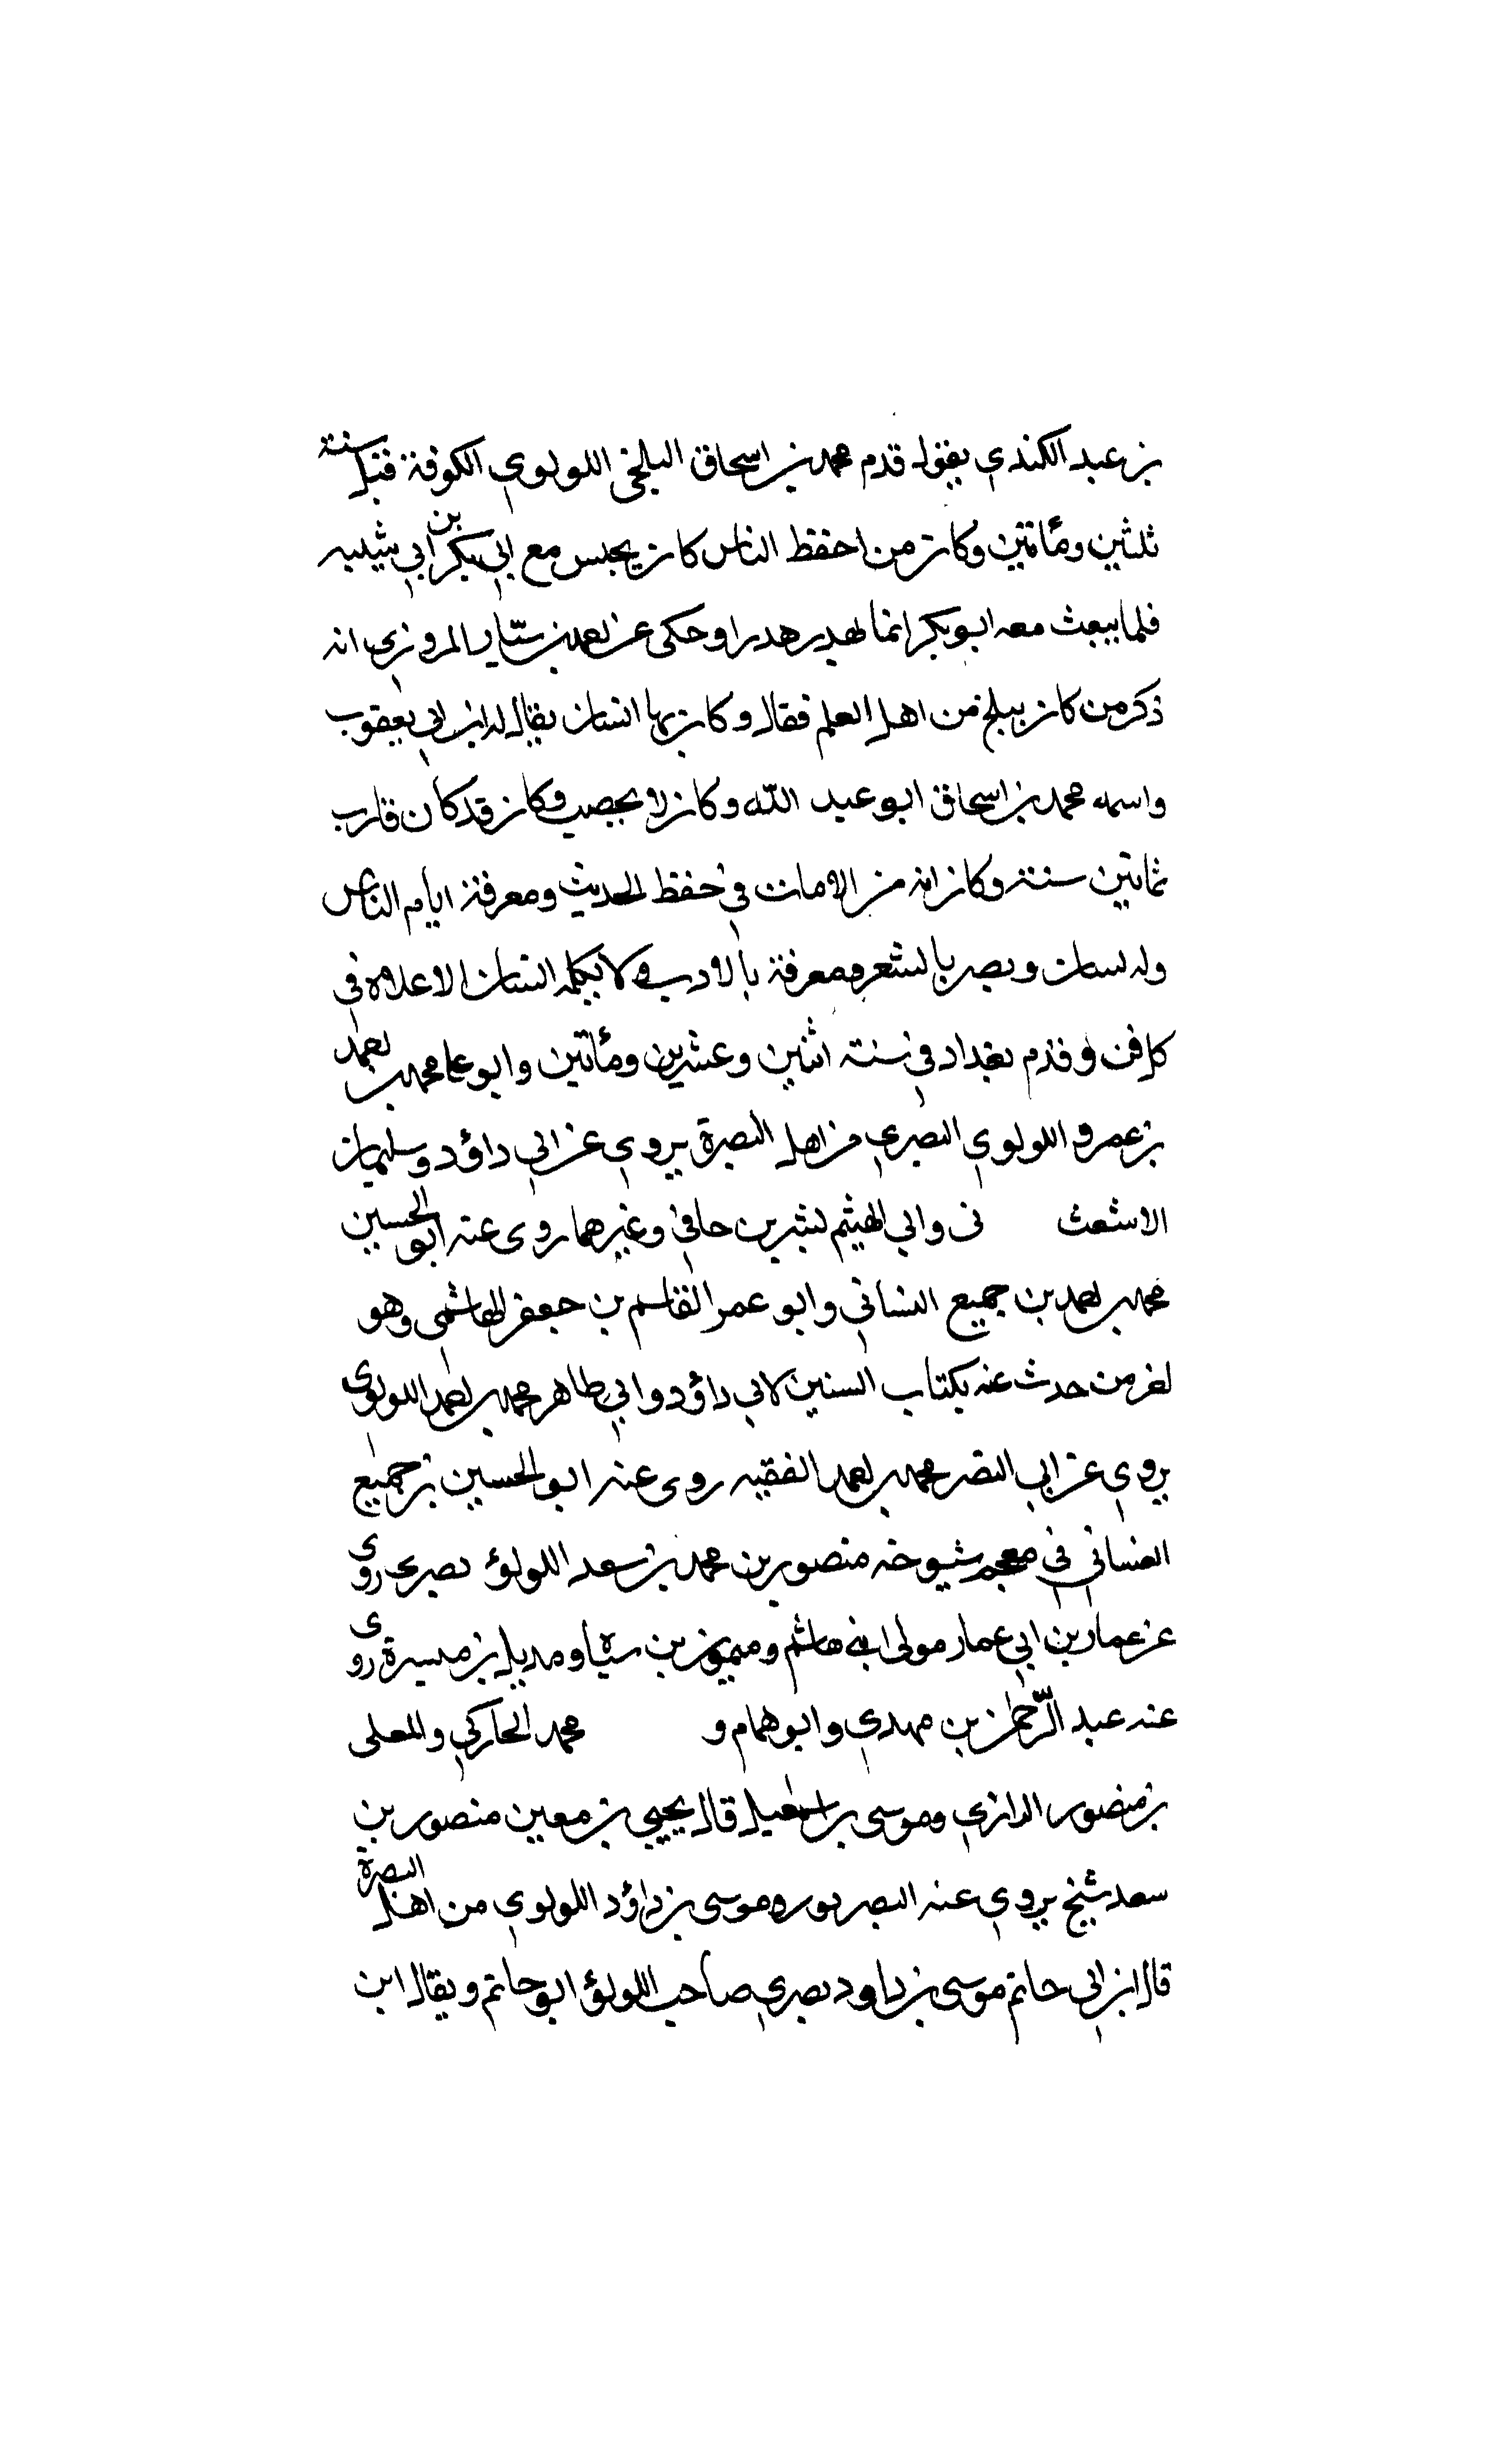 بن عبد الكندي يقول قدم محمد بن اسحاق البلخي اللولوي الكوفة قبل سنة
ثلثين ومأتين وكان من احفظ الناس كان يجلس مع ابي بكر بن ابي شيبه
فلما يبعث معه ابو بكر انما يهدر هدرا وحكى عن احمد بن سيار المروزي انه
ذكر من كان ببلخ من اهل العلم فقال وكان بها انسان يقال له ابن ابي يعقوب
واسمه محمد بن اسحاق ابو عبد الله وكان لا يخضب وكان قد كان قارب
ثمانين سنة وكان انه من الامات في حفظ الحديث ومعرفة ايام الناس
وله لسان وبصر بالشعر ومعرفة بالادب ولا يكلمه انسان الا علاه في
كل فن وقدم بغداد في سنة اثنين وعشرين ومأتين وابو علي محمد بن احمد
بن عمرو اللولوي البصري من اهل البصرة يروي عن ابي داؤد وسليمان
الاشعث نى وابي الهيثم لبشر بن حافي وغيرهما روى عنه ابو الحسين
محمد بن احمد بن جميع الغساني وابو عمر القاسم بن جعفر الهاشمي وهو
اخر من حدث عنه بكتاب السنن لابي داؤد وابي طاهر محمد بن احمد اللولوى
يروي عن ابي النضر محمد بن احمد الفقيه روى عنه ابو الحسين بن جميع
الغساني في معجم شيوخه منصور بن محمد بن سعد اللولؤ بصرى روى
عن عمار بن ابي عمار مولى ابنى هاشم وميمون بن سياه وبديل بن ميسرة روى
عنه عبد الرّحمن بن مهدي وابو همام و محمد الخاركي والمعلى
بن منصور الرازي وموسى بن اسمعيل قال يحيى بن معين منصور بن
سعد شيخ يروي عنه البصريون وموسى بن داؤد اللولوي من اهل البصرة
قال ابن ابي حاتم موسى بن داود بصري صاحب اللولؤ ابو حاتم ويقال ابن